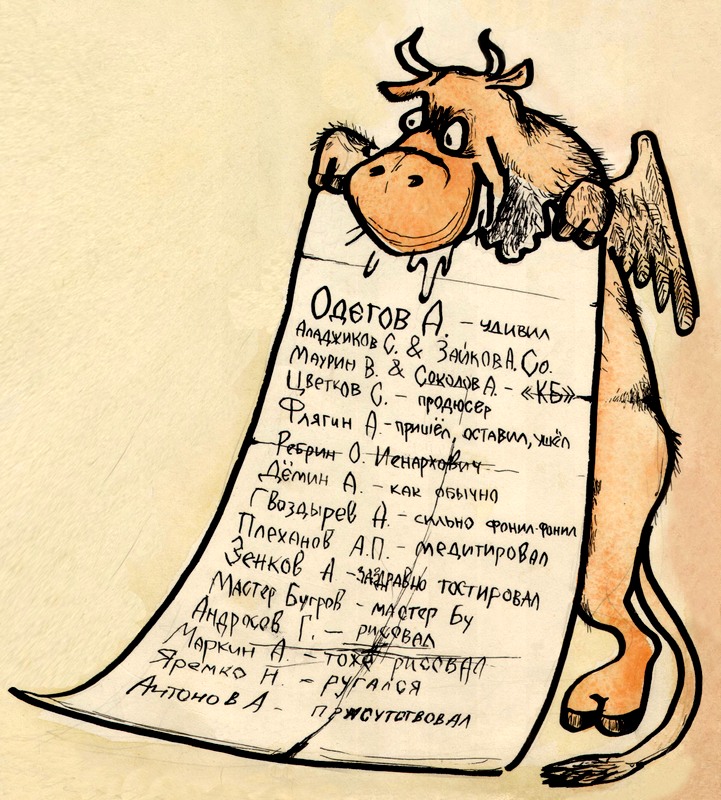 Одегов А. – удивил
Аладжиков С. & Зайков А. Со.
Маурин В. & Соколов А. – «КБ»
Цветков С. – продюсер
Флягин А. – пришёл, оставил, ушёл
Ребрин О. Иенархович
Дёмин А. – как обычно
Гвоздырев А. – сильно фонил-фонил
Плеханов А.П. – медитировал
Зенков А – заздравно тостировал
Мастер Бугров – мастер Бу
Андросов Г. – рисовал
Маркин А. – тоже рисовал
Яремко Н. – ругался
Антонов А – присутствовал